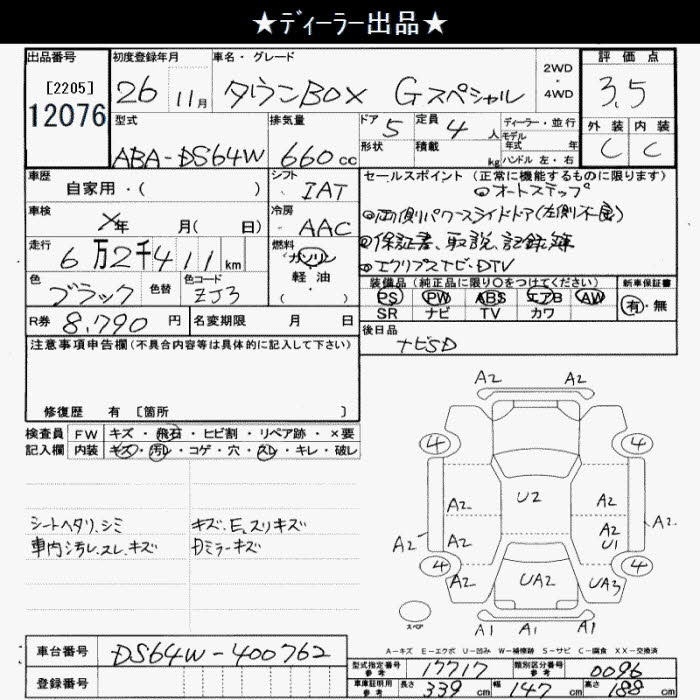 ★ディーラー出品★
出品番号 初度登録年月 車名・グレード 2WD・4WD 評価点
[2205] 12076 26 11月 タウンBOX Gスペシャル 3.5
型式 排気量 ドア 5 定員 4人 ディーラー・並行 外装 内装
ABA-DS64W 660cc 形状 積載 kg モデル年式 年 ハンドル 左・右 C C
車歴 シフト セールスポイント (正常に機能するものに限ります)
自家用・( ) IAT ◎オートステップ
車検 冷房 ◎両側パワースライドドア(左側不良)
X年 月( 日) AAC ◎保証書、取説、記録簿
走行 6万2千411km 燃料 ガソリン・軽油・( ) ◎エクリプスナビ・DTV
色 ブラック 色替 色コード ZJ3
装備品 (純正品に限り○をつけてください) 新車保証書
PS PW ABS エアB AW 有・無
SR ナビ TV カワ
R券 8,790円 名変期限 月 日 後日品
注意事項申告欄 (不具合内容等は具体的に記入して下さい) ナビSD
修復歴 有 [箇所 ]
検査員 FW キズ・飛石・ヒビ割・リペア跡・×要
記入欄 内装 キズ・汚レ・コゲ・穴・スレ・キレ・破レ
シートヘタリ、シミ キズ、E、スリキズ
車内汚レ、スレ、キズ Dミラーキズ
A2 A2
4 4
A2 U2 A2
A2 A2 A2 U1 A2
4 4
A2 UA2 UA3
スペア A1 A1
A-キズ E-エクボ U-凹み W-補修跡 S-サビ C-腐食 XX-交換済
車台番号 DS64W-400762
型式指定番号 参考 17717 類別区分番号 参考 0096
登録番号
車庫証明用 参考 長さ 339cm 幅 147cm 高さ 188cm